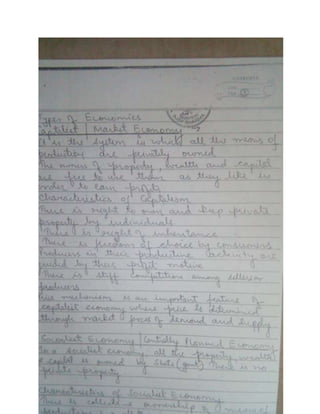 Types of Economies
Capitalist / Market Economy
It is the system in which all the means of
production are privately owned
The owners of property, wealth and capital
are free to use them as they like in
order to earn profits
Characteristics of Capitalism
There is right to own and keep private
property by individuals
There is right of inheritance
There is freedom of choice by consumers
Producers in their productive activity are
guided by their profit motive
There is stiff competition among sellers or
producers
Price mechanism is an important feature of
capitalist economy where price is determined
through market forces of demand and supply
Socialist Economy / Centrally Planned Economy
In a socialist economy all the property, wealth
& capital is owned by State (govt) There is no
private property
Characteristics of Socialist Economy
There is collective ownership of means